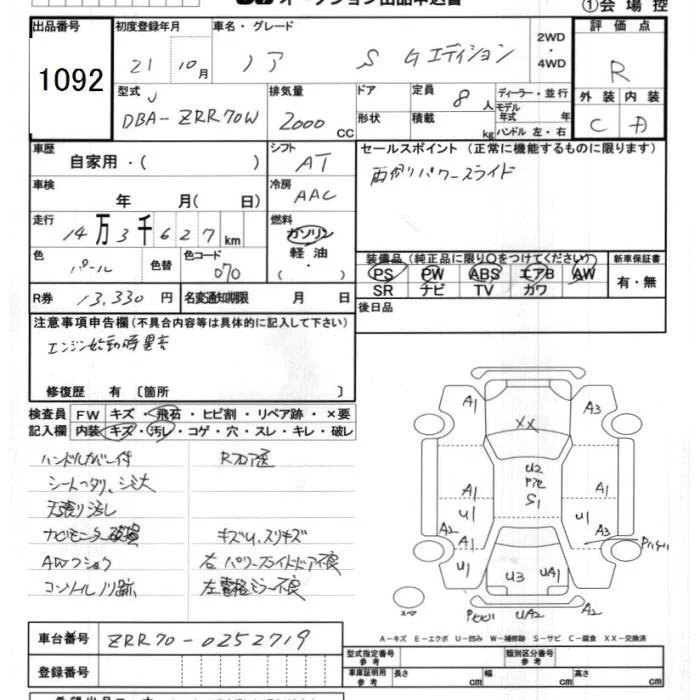 オークション出品申込書
①会場控
出品番号 初度登録年月 車名・グレード 2WD・4WD 評価点
1092 21 10月 ノア S Gエディション R
型式 排気量 ドア 定員 ディーラー・並行 外装 内装
DBA-ZRR70W 2000 CC 形状 8人 積載 kg モデル年式 年 ハンドル 左・右 C D
車歴 自家用・( ) シフト AT セールスポイント (正常に機能するものに限ります)
車検 年 月(日) 冷房 AAC 両側パワースライド
走行 14万3千627km 燃料 ガソリン 軽油
色 パール 色替 色コード 070 装備品 (純正品に限り○をつけてください) 新車保証書
PS PW ABS エアB AW 有・無
SR ナビ TV カワ
R券 13,330円 名変通知期限 月 日 後日品
注意事項申告欄(不具合内容等は具体的に記入して下さい)
エンジン始動時異音
修復歴 有 〔箇所 〕
検査員 FW キズ・飛石・ヒビ割・リペア跡・×要
記入欄 内装 キズ・汚レ・コゲ・穴・スレ・キレ・破レ
ハンドルカバー付 Rフロア
シートヘタリ、シミ大
天張り汚し
ナビモニター破損 キズU、スリキズ
AWフショク 右パワースライドドア不良
コントロールノリ跡 左電格ミラー不良
A1 A3
XX
U2
S1
A1 A1
U1 U1
A2 A3
A1
U1 U3 UA1
UA2 A2
スペア
A-キズ E-エクボ U-凹み W-補修跡 S-サビ C-腐食 XX-交換済
車台番号 ZRR70-0252719
登録番号
型式指定番号 参考 類別区分番号 参考
車庫証明用 参考 長さ cm 幅 cm 高さ cm